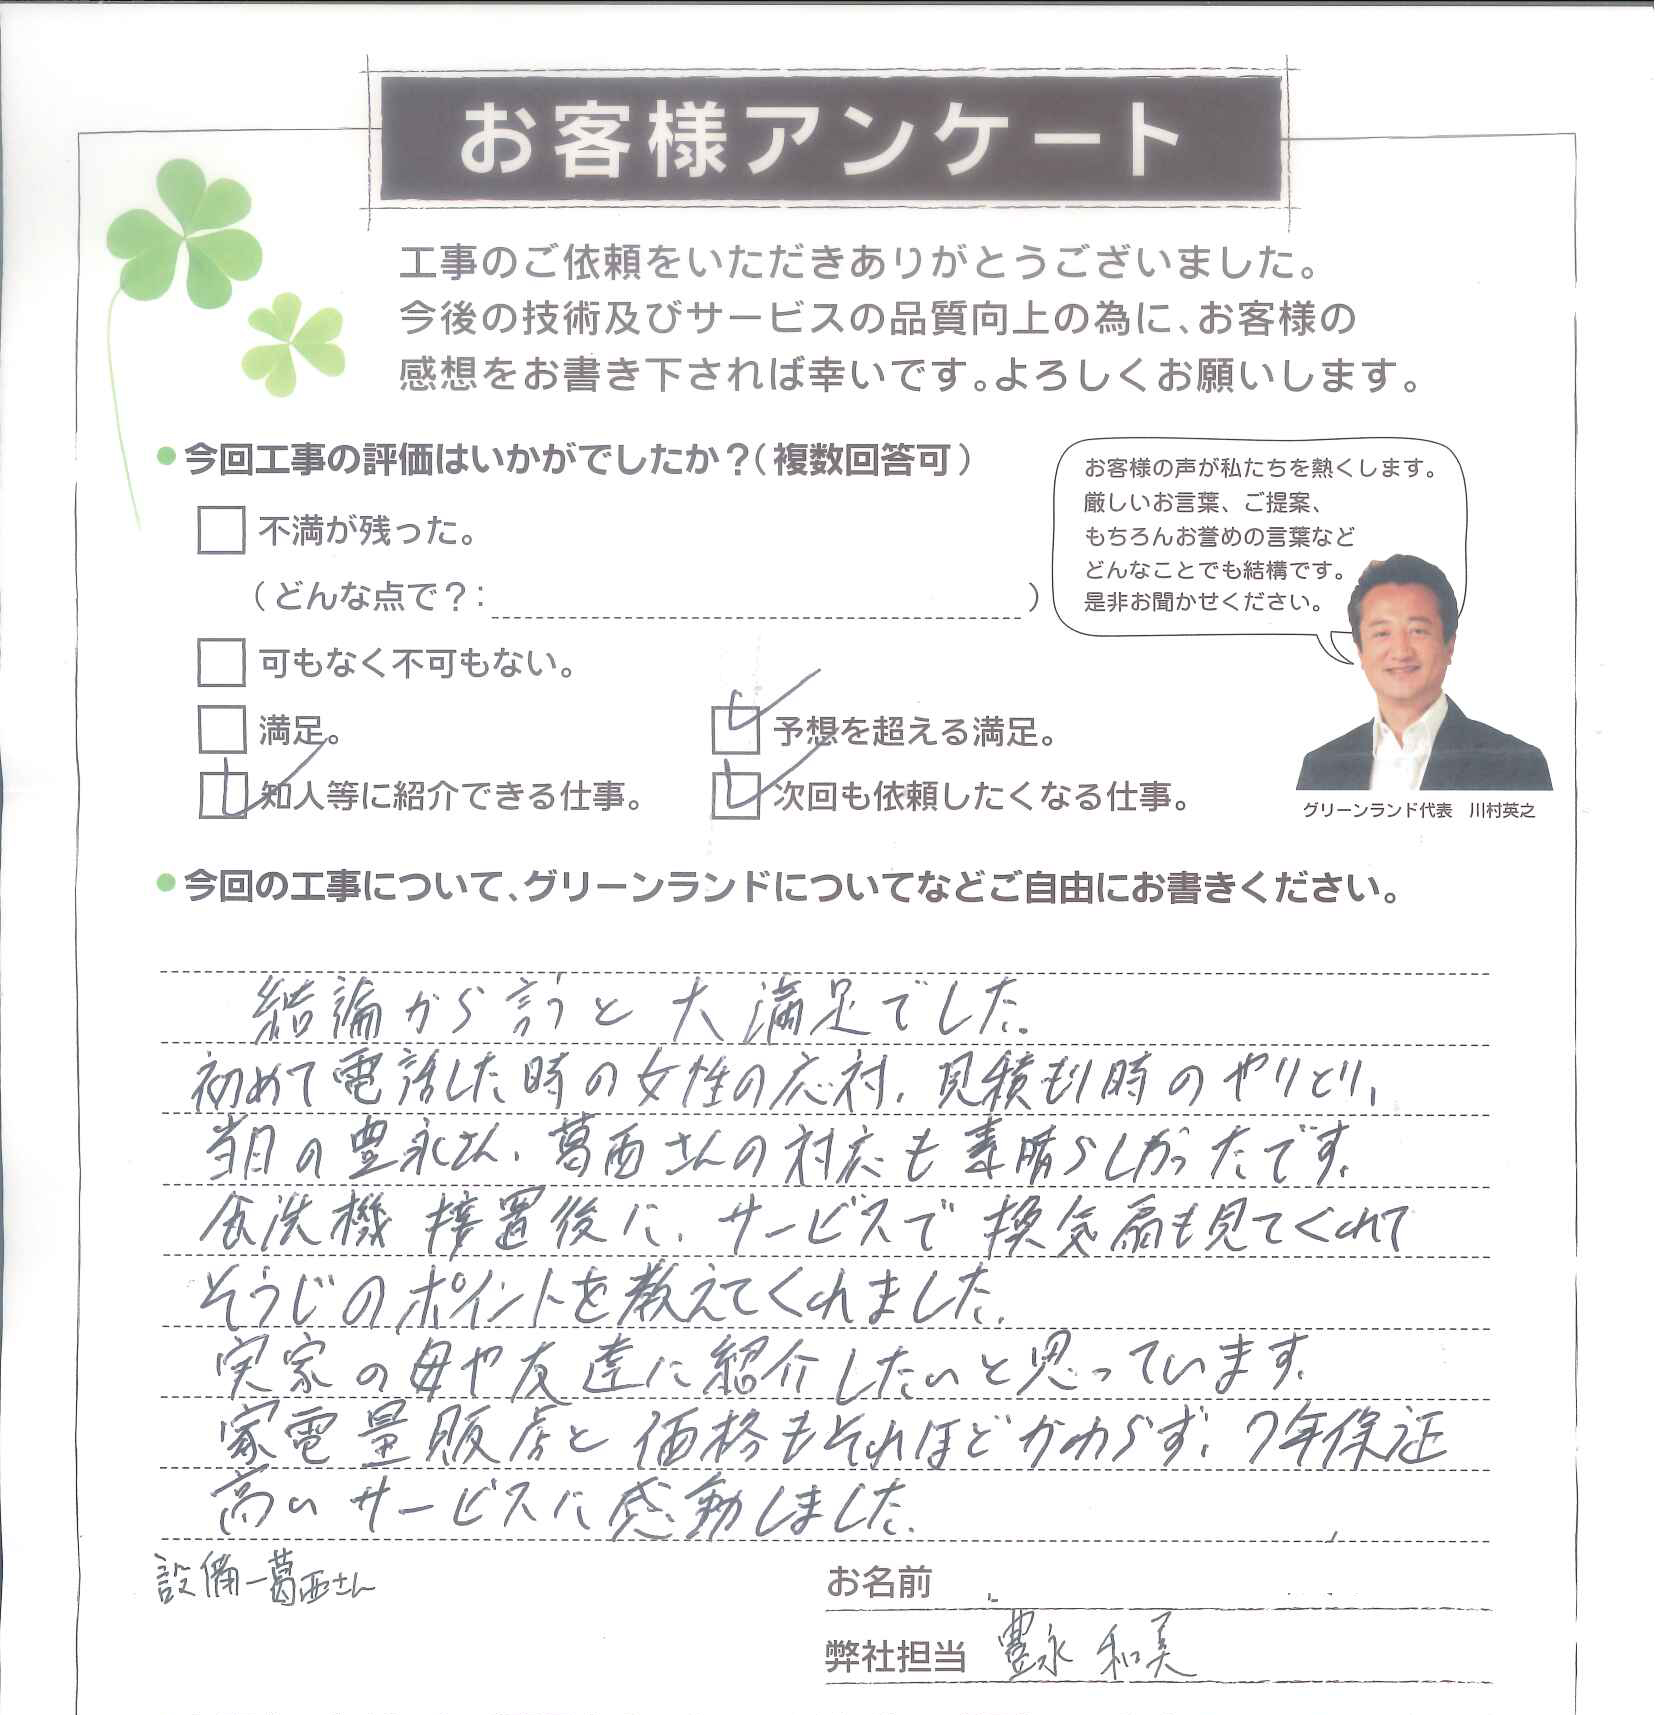 お客様アンケート
工事のご依頼をいただきありがとうございました。
今後の技術及びサービスの品質向上の為に、お客様の
感想をお書き下されば幸いです。よろしくお願いします。
今回工事の評価はいかがでしたか？（複数回答可）
不満が残った。
（どんな点で？：　）
可もなく不可もない。
満足。
予想を超える満足。
知人等に紹介できる仕事。
次回も依頼したくなる仕事。
お客様の声が私たちを熱くします。
厳しいお言葉、ご提案、
もちろんお誉めの言葉など
どんなことでも結構です。
是非お聞かせください。
グリーンランド代表　川村英之
今回の工事について、グリーンランドについてなどご自由にお書きください。
結論から言うと大満足でした。
初めて電話した時の女性の応対、見積もり時のやりとり、
当日の豊永さん、葛西さんの対応も素晴らしかったです。
食洗機接置後に、サービスで換気扇も見てくれて
そうじのポイントを教えてくれました。
実家の母や友達に紹介したいと思っています。
家電量販店と価格もそれほどかわらず、7年保証
高いサービスに感動しました。
設備－葛西さん
お名前
弊社担当　豊永 和美